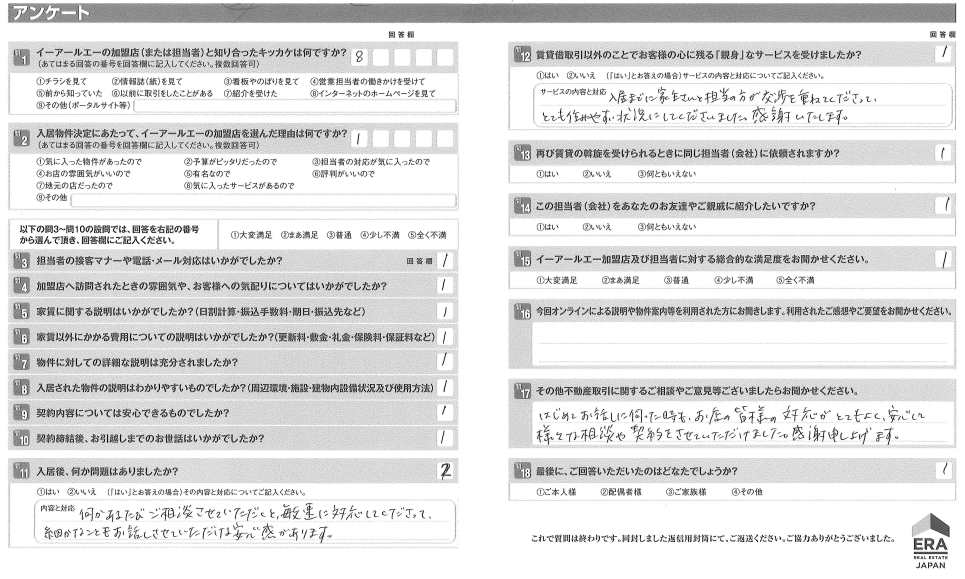 アンケート
回答欄
問1 イーアールエーの加盟店（または担当者）と知り合ったキッカケは何ですか？ 8
(あてはまる回答の番号を回答欄に記入してください。複数回答可)
①チラシを見て ②情報誌(紙)を見て ③看板やのぼりを見て ④営業担当者の働きかけを受けて
⑤前から知っていた ⑥以前に取引をしたことがある ⑦紹介を受けた ⑧インターネットのホームページを見て
⑨その他(ポータルサイト等)
問2 入居物件決定にあたって、イーアールエーの加盟店を選んだ理由は何ですか？ 1
(あてはまる回答の番号を回答欄に記入してください。複数回答可)
①気に入った物件があったので ②予算がピッタリだったので ③担当者の対応が気に入ったので
④お店の雰囲気がいいので ⑤有名なので ⑥評判がいいので
⑦地元の店だったので ⑧気に入ったサービスがあるので
⑨その他
以下の問3〜問10の設問では、回答を右記の番号
から選んで頂き、回答欄にご記入ください。
①大変満足 ②まあ満足 ③普通 ④少し不満 ⑤全く不満
問3 担当者の接客マナーや電話・メール対応はいかがでしたか？ 回答欄 1
問4 加盟店へ訪問されたときの雰囲気や、お客様への気配りについてはいかがでしたか？ 1
問5 家賃に関する説明はいかがでしたか？(日割計算・振込手数料・期日・振込先など) 1
問6 家賃以外にかかる費用についての説明はいかがでしたか？(更新料・敷金・礼金・保険料・保証料など) 1
問7 物件に対しての詳細な説明は充分されましたか？ 1
問8 入居された物件の説明はわかりやすいものでしたか？(周辺環境・施設・建物内設備状況及び使用方法) 1
問9 契約内容については安心できるものでしたか？ 1
問10 契約締結後、お引越しまでのお世話はいかがでしたか？ 1
問11 入居後、何か問題はありましたか？ 2
①はい ②いいえ （「はい」とお答えの場合）その内容と対応についてご記入ください。
内容と対応 何かあるたびご相談させていただくと、敏速に対応してくださって、
細かなこともお話しさせていただける安心感があります。
回答欄
問12 賃貸借取引以外のことでお客様の心に残る「親身」なサービスを受けましたか？ 1
①はい ②いいえ （「はい」とお答えの場合）サービスの内容と対応についてご記入ください。
サービスの内容と対応 入居までに家主さんと担当の方が交渉を重ねてくださって、
とても住みやすい状況にしてくださいました。感謝いたします。
問13 再び賃貸の斡旋を受けられるときに同じ担当者(会社)に依頼されますか？ 1
①はい ②いいえ ③何ともいえない
問14 この担当者(会社)をあなたのお友達やご親戚に紹介したいですか？ 1
①はい ②いいえ ③何ともいえない
問15 イーアールエー加盟店及び担当者に対する総合的な満足度をお聞かせください。 1
①大変満足 ②まあ満足 ③普通 ④少し不満 ⑤全く不満
問16 今回オンラインによる説明や物件案内等を利用された方にお聞きします。利用されたご感想やご要望をお聞かせください。
問17 その他不動産取引に関するご相談やご意見等ございましたらお聞かせください。
はじめてお話しに伺った時も、お店の皆様の対応がとてもよく、安心して
様々な相談や契約をさせていただけました。感謝申し上げます。
問18 最後に、ご回答いただいたのはどなたでしょうか？ 1
①ご本人様 ②配偶者様 ③ご家族様 ④その他
これで質問は終わりです。同封しました返信用封筒にて、ご返送ください。ご協力ありがとうございました。
ERA
REAL ESTATE
JAPAN